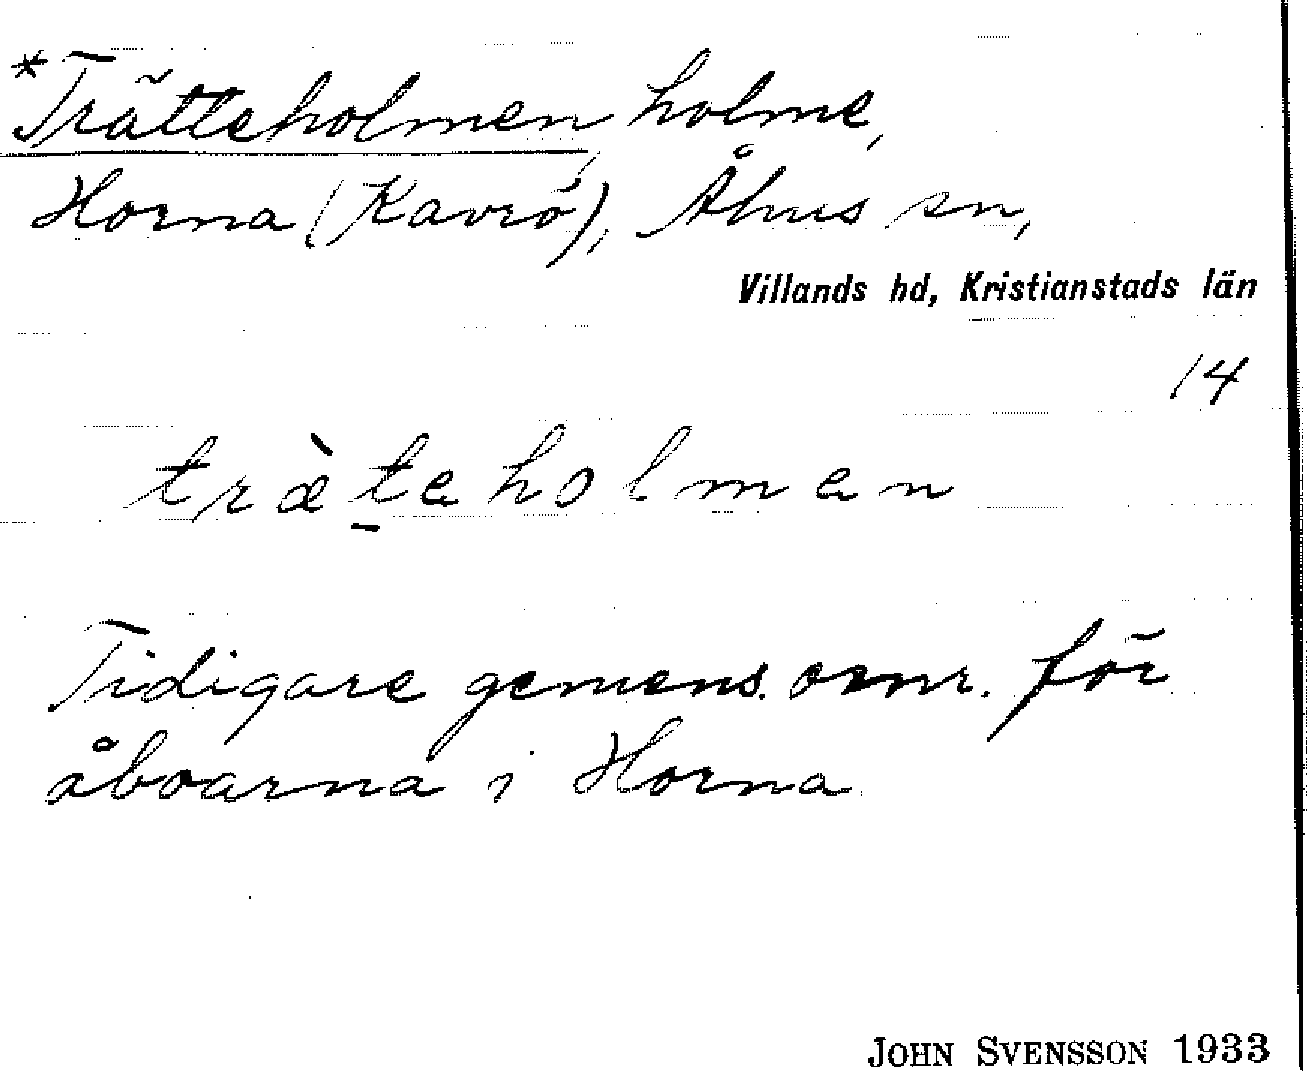 *Trätteholmen, holme,
Horna (Kavrö), Åhus sn,
Villands hd, Kristianstads län
14
træ̀t̲eholmen
Tidigare gemens. omr. för
åboarna i Horna
JOHN SVENSSON 1933